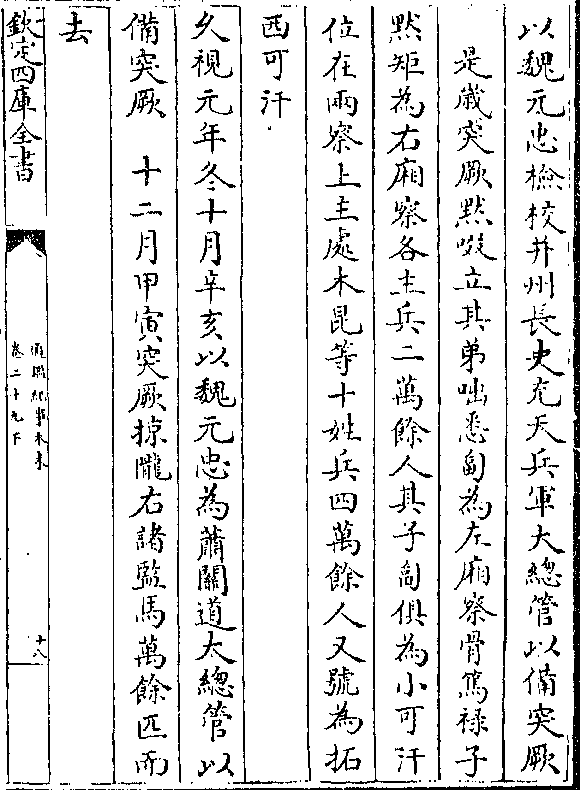 以魏元忠檢校并州長史充天兵軍大總管以備突厥
是歲突厥黙啜立其弟咄悉匐為左廂察骨篤祿子
黙矩為右廂察各主兵二萬餘人其子匐俱為小可汗
位在兩察上主處木昆等十姓兵四萬餘人又號為拓
西可汗
久視元年冬十月辛亥以魏元忠為蕭關道大總管以
備突厥　十二月甲寅突厥掠隴右諸監馬萬餘匹而
去
欽定四庫全書
通鑑紀事本末
卷二十九下
十八